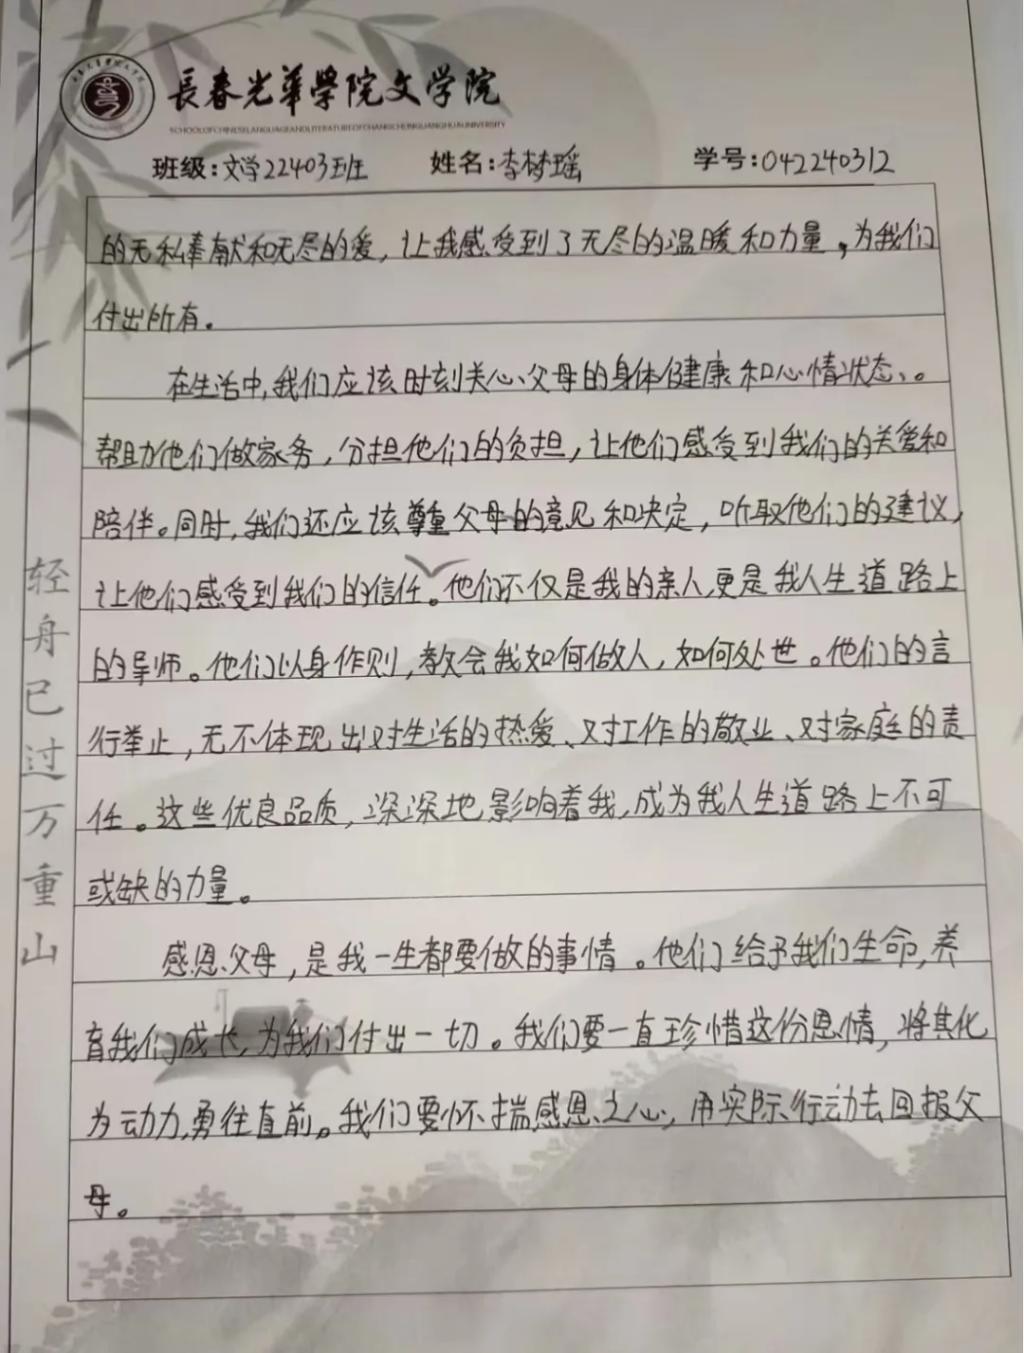 長春光華學院文学院
SCHOOL OF CHINESE LANGUAGE AND LITERATURE OF CHANGCHUN GUANGHUA UNIVERSITY
班级:文学22403班 姓名:李梦瑶 学号:042240312
的无私奉献和无尽的爱,让我感受到了无尽的温暖和力量,为我们
付出所有。
在生活中,我们应该时刻关心父母的身体健康和心情状态、。
帮助他们做家务,分担他们的负担,让他们感受到我们的关爱和
陪伴。同时,我们还应该尊重父母的意见和决定,听取他们的建议,
让他们感受到我们的信任。他们不仅是我的亲人,更是我人生道路上
的导师。他们以身作则,教会我如何做人,如何处世。他们的言
行举止,无不体现出对生活的热爱、对工作的敬业、对家庭的责
任。这些优良品质,深深地影响着我,成为我人生道路上不可
或缺的力量。
感恩父母,是我一生都要做的事情。他们给予我们生命,养
育我们成长,为我们付出一切。我们要一直珍惜这份恩情,将其化
为动力,勇往直前。我们要怀揣感恩之心,用实际行动去回报父
母。
轻舟已过万重山